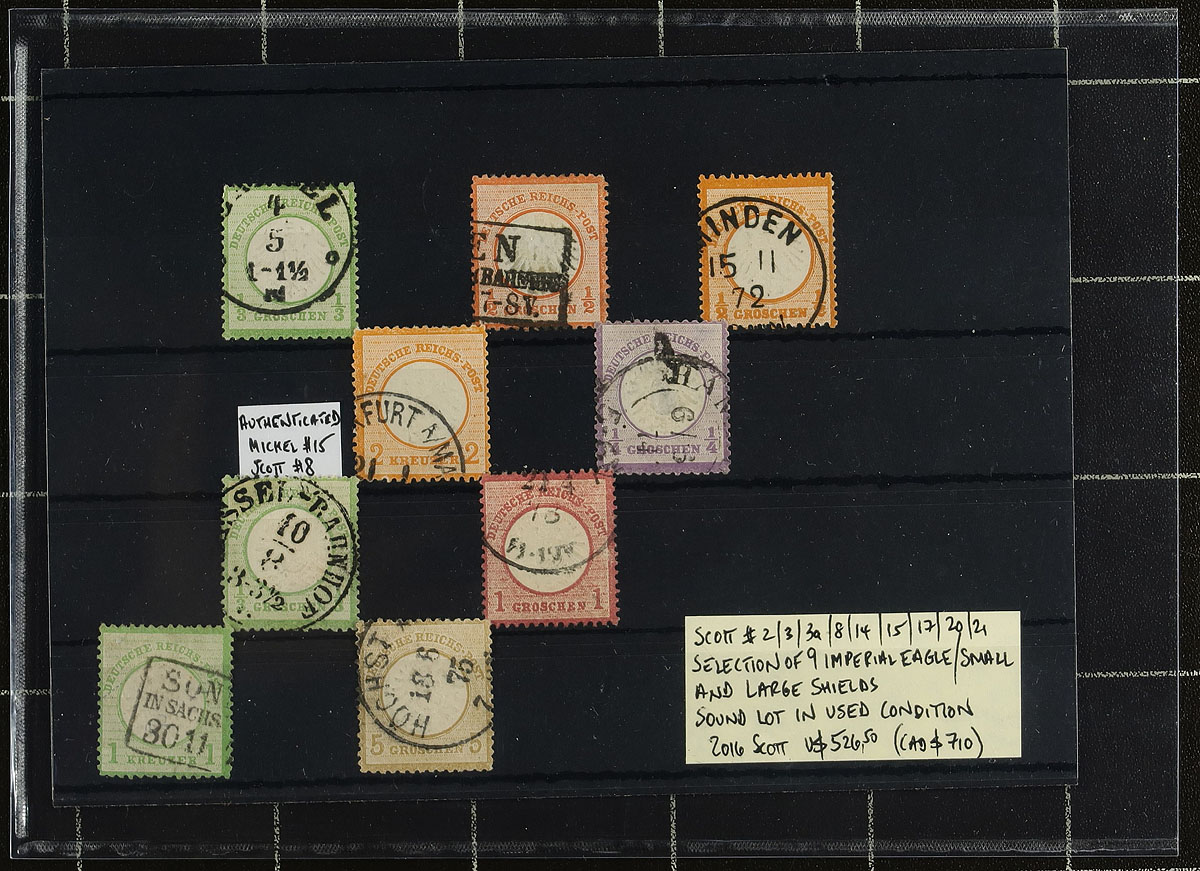 4
5
1-1½
N
DEUTSCHE REICHS-POST
⅓ GROSCHEN ⅓
DEUTSCHE REICHS-POST
EN
7-8V.
½ GROSCHEN ½
REICHS-POST
MINDEN
15 11
72
½ GROSCHEN
DEUTSCHE REICHS-POST
KFURT A/MA
21 1
2 KREUZER 2
DEUTSCHE REICHS-PO
¼ GROSCHEN ¼
AUTHENTICATED
MICKEL #15
SCOTT #8
SSEL-BAHNHOF
10
8-3½
21 4
DEUTSCHE REICHS-POST
1 GROSCHEN 1
DEUTSCHE REICHS-
SON
IN SACHS.
30 11
1 KREUZER 1
REICHS-PO
HÖCHST
18 6
75
5 GROSCHEN 5
SCOTT # 2/3/3a/8/14/15/17/20/21
SELECTION OF 9 IMPERIAL EAGLE/SMALL
AND LARGE SHIELDS
SOUND LOT IN USED CONDITION
2016 SCOTT U$ 526,50 (CAD $ 710)